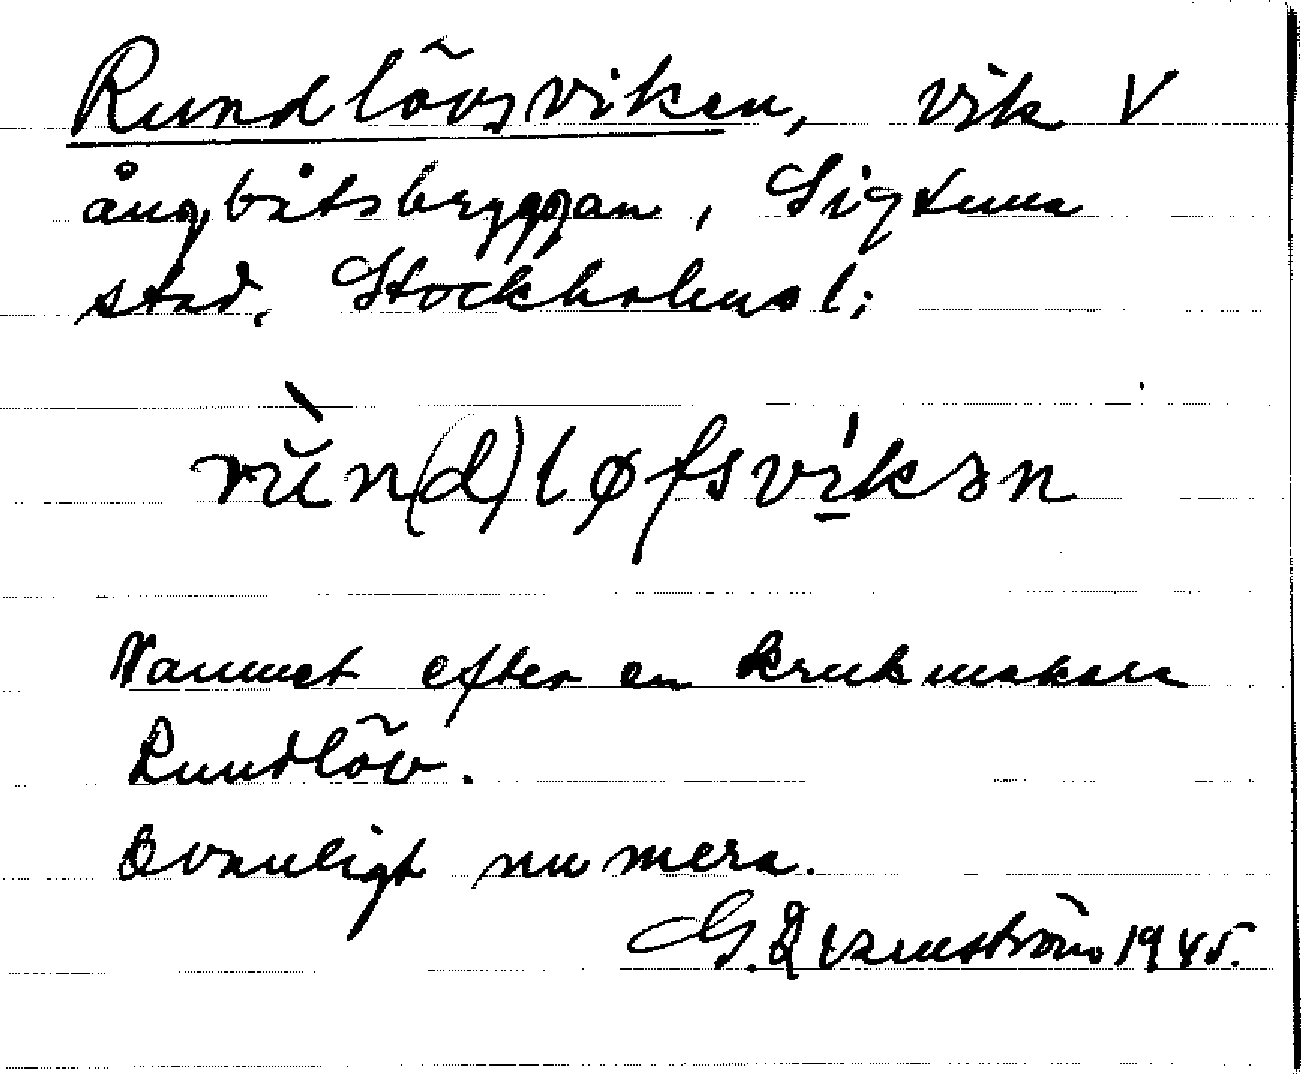 Rundlövsviken, vik V
ångbåtsbryggan, Sigtuna
stad, Stockholms l;
rŭ̀n(d)løfsvi̱̍kən
Namnet efter en krukmakare
Rundlöv.
Ovanligt numera.
G. Qvarnström 1945.